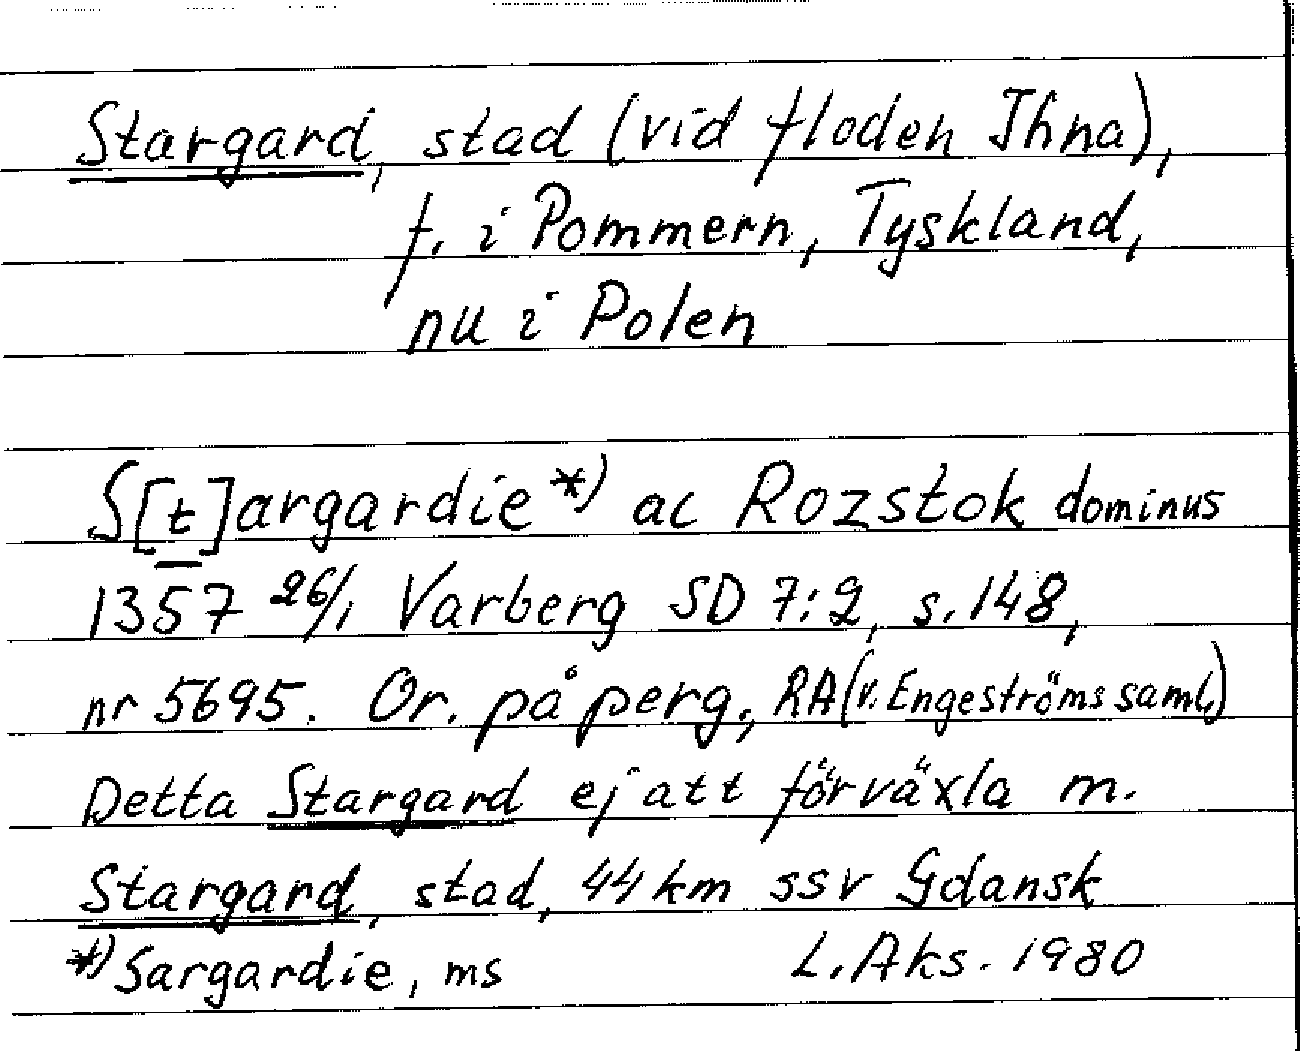 Stargard, stad (vid floden Ihna),
f. i Pommern, Tyskland,
nu i Polen
S[t]argardie *) ac Rozstok dominus
1357 26/1 Varberg SD 7:2, s. 148,
nr 5695. Or. på perg., RA (v. Engeströms saml.)
Detta Stargard ej att förväxla m.
Stargard, stad, 44 km ssv Gdansk
*) Sargardie, ms L. Aks. 1980